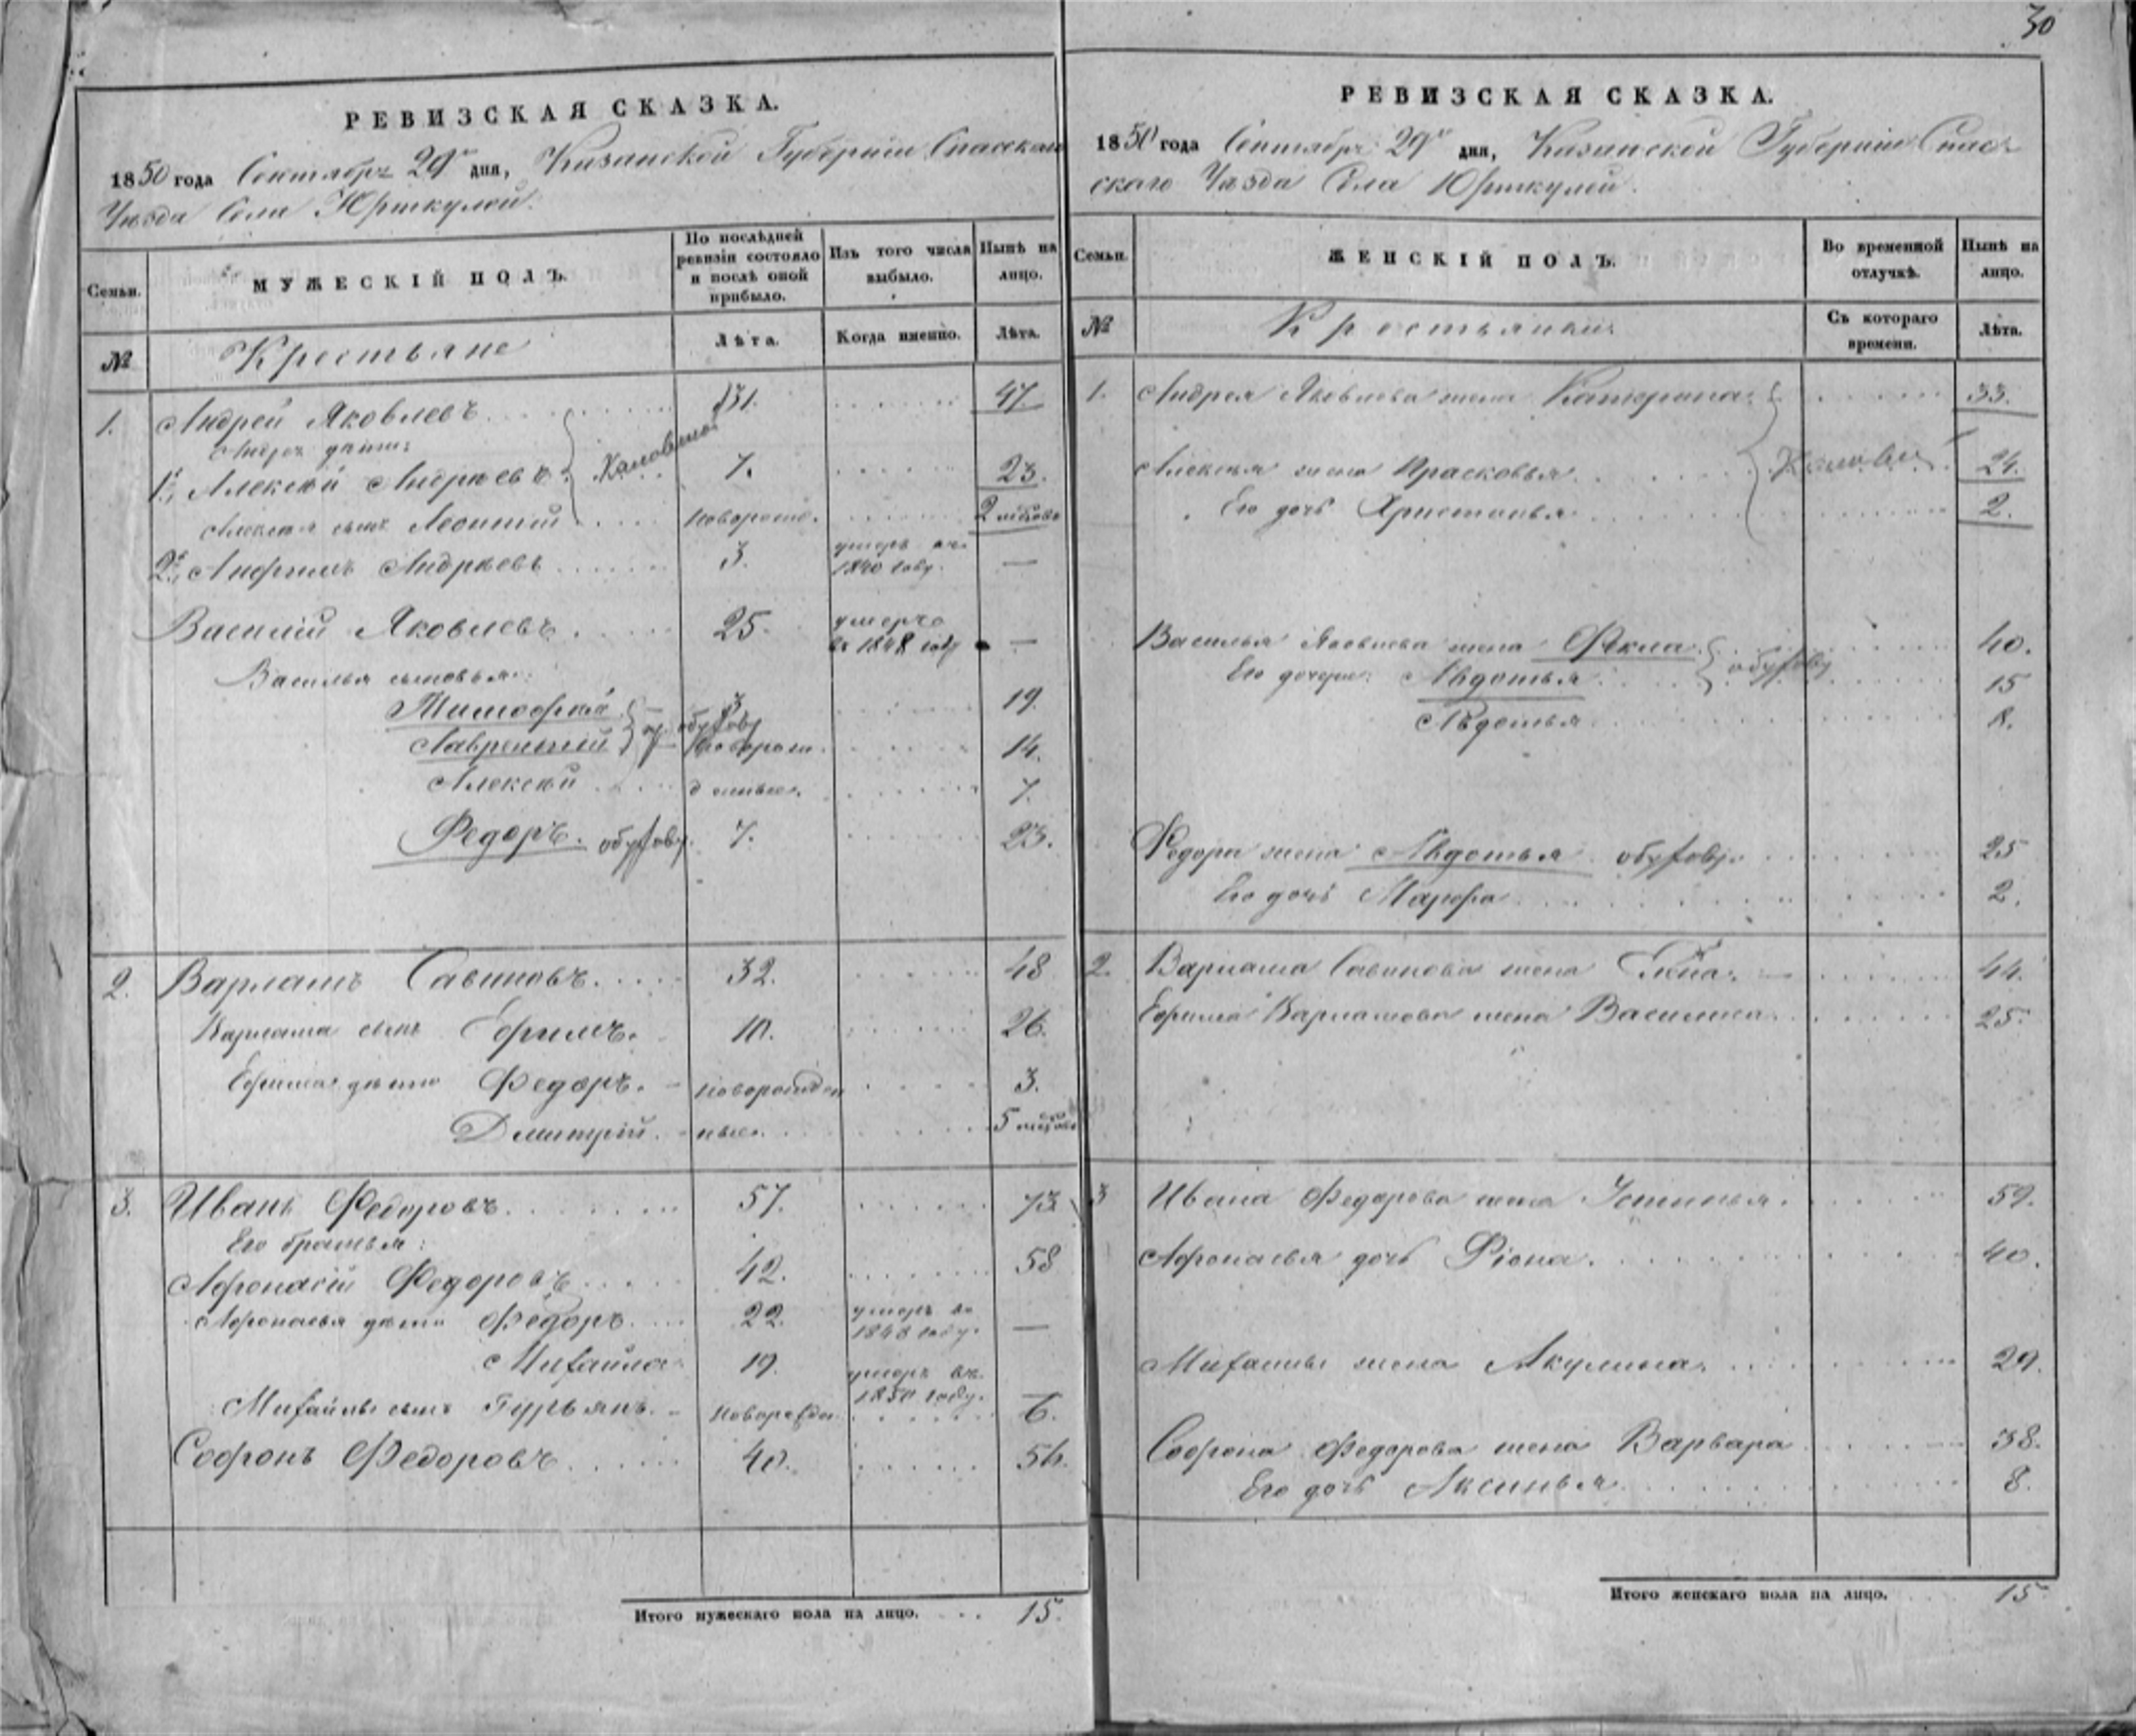 30
РЕВИЗСКАЯ СКАЗКА.
1850 года Сентября 29го дня, Казанской Губерніи Спасскаго
Уѣзда Села Юрткулей.
Семьи.
МУЖЕСКІЙ ПОЛЪ.
По послѣдней ревизіи состояло и послѣ оной прибыло.
Изъ того числа выбыло.
Нынѣ на лицо.
№
Крестьяне
Лѣта.
Когда именно.
Лѣта.
1. Андрей Яковлевъ 31. 47.
Андрея дѣти:
1й Алексѣй Андреевъ 7. 23.
Алексѣя сынъ Леонтій новорожд. 2
2й Анфимъ Андреевъ 3. умеръ въ 1840 году. —
Василій Яковлевъ 25. умеръ въ 1848 году —
Василья сыновья:
Тимофей 3 19.
Лаврентій новорож 14.
Алексѣй денные. 7.
Федоръ. 7. 23.
2. Варламъ Савиновъ 32. 48
Варлама сынъ Ефимъ. 10. 26.
Ефима дѣти Федоръ. новорожден 3.
Дмитрій. ные. 5
3. Иванъ Федоровъ 57. 73
Его братья:
Афонасій Федоровъ 42. 58
Афонасья дѣти Федоръ 22. умеръ въ 1848 году. —
Михайла 19. умеръ въ 1850 году. —
Михайлы сынъ Гурьянъ. новорожден 6.
Софронъ Федоровъ 40. 56.
Итого мужескаго пола на лицо. 15.
РЕВИЗСКАЯ СКАЗКА.
1850 года Сентября 29го дня, Казанской Губерніи Спас-
скаго Уѣзда Села Юрткулей.
Семьи.
ЖЕНСКІЙ ПОЛЪ.
Во временной отлучкѣ.
Нынѣ на лицо.
№
Крестьянки
Съ котораго времени.
Лѣта.
1. Андрея Яковлева жена Катерина 33.
Алексѣя жена Прасковья 24.
Его дочь Христинья 2.
Василья Яковлева жена Фекла 40.
Его дочери: Авдотья 15
Авдотья 8.
Федора жена Авдотья 25
Его дочь Марфа 2.
2. Варлама Савинова жена 44.
Ефима Варламова жена Василиса 25.
3 Ивана Федорова жена Устинья. 59.
Афонасья дочь Фіона. 40.
Михайлы жена Акулина. 29.
Софрона Федорова жена Варвара 38.
Его дочь Аксинья 8.
Итого женскаго пола на лицо. 15